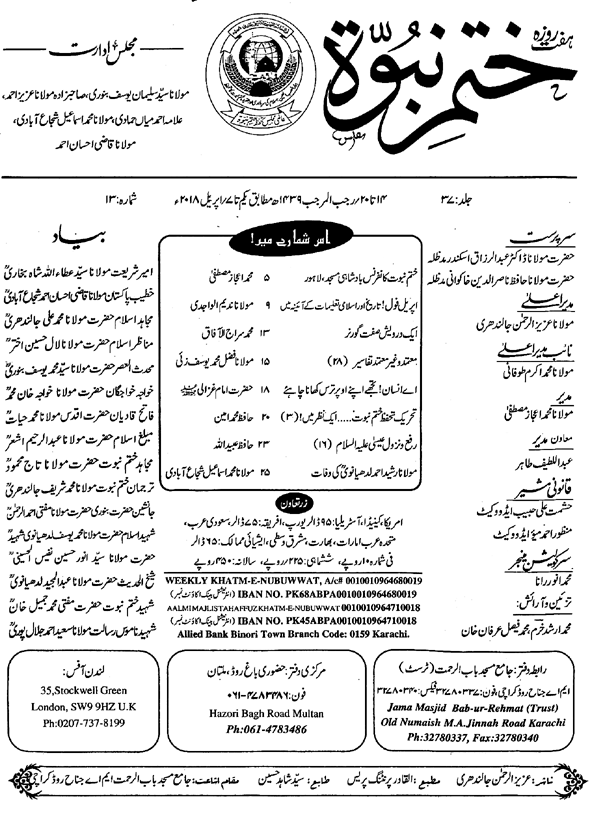 ہفت روزہ
ختم نبوۃ
مجلس ادارت
مولانا سید سلیمان یوسف بنوری، صاحبزادہ مولانا عزیز احمد،
علامہ احمد میاں حمادی، مولانا محمد اسماعیل شجاع آبادی،
مولانا قاضی احسان احمد
جلد: ۳۷
۱۴ تا ۲۰ / رجب المرجب ۱۴۳۹ھ مطابق یکم تا ۷ / اپریل ۲۰۱۸ء
شمارہ: ۱۳
سرپرست
حضرت مولانا ڈاکٹر عبدالرزاق اسکندر مدظلہ
حضرت مولانا حافظ ناصر الدین خاکوانی مدظلہ
مدیر اعلیٰ
مولانا عزیز الرحمٰن جالندھری
نائب مدیر اعلیٰ
مولانا محمد اکرم طوفانی
مدیر
مولانا محمد اعجاز مصطفیٰ
معاون مدیر
عبداللطیف طاہر
قانونی مشیر
حشمت علی حبیب ایڈووکیٹ
منظور احمد میو ایڈووکیٹ
سرکولیشن منیجر
محمد انور رانا
تزئین و آرائش:
محمد ارشد خرم، محمد فیصل عرفان خان
اس شمارے میں!
ختم نبوت کانفرنس بادشاہی مسجد، لاہور ۵ محمد اعجاز مصطفیٰ
اپریل فول! تاریخ اور اسلامی تعلیمات کے آئینہ میں ۹ مولانا ندیم الواجدی
ایک درویش صفت گورنر ۱۳ محمد سراج الآفاق
معتمد و غیر معتمد تفاسیر (۲۸) ۱۵ مولانا فضل محمد یوسف زئی
اے انسان! تجھے اپنے اوپر ترس کھانا چاہئے ۱۸ حضرت امام غزالی
تحریک تحفظ ختم نبوت..... ایک نظر میں! (۳) ۲۰ حافظ محمد امین
رفع و نزول عیسیٰ علیہ السلام (۱۶) ۲۳ حافظ عبیداللہ
مولانا رشید احمد لدھیانوی کی وفات ۲۵ مولانا محمد اسماعیل شجاع آبادی
زرتعاون
امریکا، کینیڈا، آسٹریلیا: ۹۵ ڈالر یورپ، افریقہ: ۷۵ ڈالر، سعودی عرب،
متحدہ عرب امارات، بھارت، مشرق وسطیٰ، ایشیائی ممالک: ۶۵ ڈالر
فی شمارہ ۱۰ روپے، ششماہی: ۲۲۵ روپے، سالانہ: ۳۵۰ روپے
WEEKLY KHATM-E-NUBUWWAT, A/c# 0010010964680019
IBAN NO. PK68ABPA0010010964680019
AALMI MAJLIS TAHAFFUZ KHATM-E-NUBUWWAT 0010010964710018
IBAN NO. PK45ABPA0010010964710018
Allied Bank Binori Town Branch Code: 0159 Karachi.
بیاد
امیر شریعت مولانا سید عطاء اللہ شاہ بخاریؒ
خطیب پاکستان مولانا قاضی احسان احمد شجاع آبادیؒ
مجاہد اسلام حضرت مولانا محمد علی جالندھریؒ
مناظر اسلام حضرت مولانا لال حسین اخترؒ
محدث العصر حضرت مولانا سید محمد یوسف بنوریؒ
خواجہ خواجگان حضرت مولانا خواجہ خان محمدؒ
فاتح قادیان حضرت اقدس مولانا محمد حیاتؒ
مبلغ اسلام حضرت مولانا عبدالرحیم اشعرؒ
مجاہد ختم نبوت حضرت مولانا تاج محمودؒ
ترجمان ختم نبوت مولانا محمد شریف جالندھریؒ
جانشین حضرت بنوری حضرت مولانا مفتی احمد الرحمٰنؒ
شہید اسلام حضرت مولانا محمد یوسف لدھیانوی شہیدؒ
حضرت مولانا سید انور حسین نفیس الحسینیؒ
شیخ الحدیث حضرت مولانا عبدالمجید لدھیانویؒ
شہید ختم نبوت حضرت مفتی محمد جمیل خانؒ
شہید ناموس رسالت مولانا سعید احمد جلال پوریؒ
رابطہ دفتر: جامع مسجد باب الرحمت (ٹرسٹ)
ایم اے جناح روڈ کراچی، فون: ۳۲۷۸۰۳۳۷ فیکس: ۳۲۷۸۰۳۴۰
Jama Masjid Bab-ur-Rehmat (Trust)
Old Numaish M.A.Jinnah Road Karachi
Ph:32780337, Fax:32780340
مرکزی دفتر: حضوری باغ روڈ، ملتان
فون: ۰۶۱-۴۷۸۳۴۸۶
Hazori Bagh Road Multan
Ph:061-4783486
لندن آفس:
35,Stockwell Green
London, SW9 9HZ U.K
Ph:0207-737-8199
ناشر: عزیز الرحمٰن جالندھری مطبع: القادر پرنٹنگ پریس طابع: سید شاہد حسین مقام اشاعت: جامع مسجد باب الرحمت ایم اے جناح روڈ کراچی